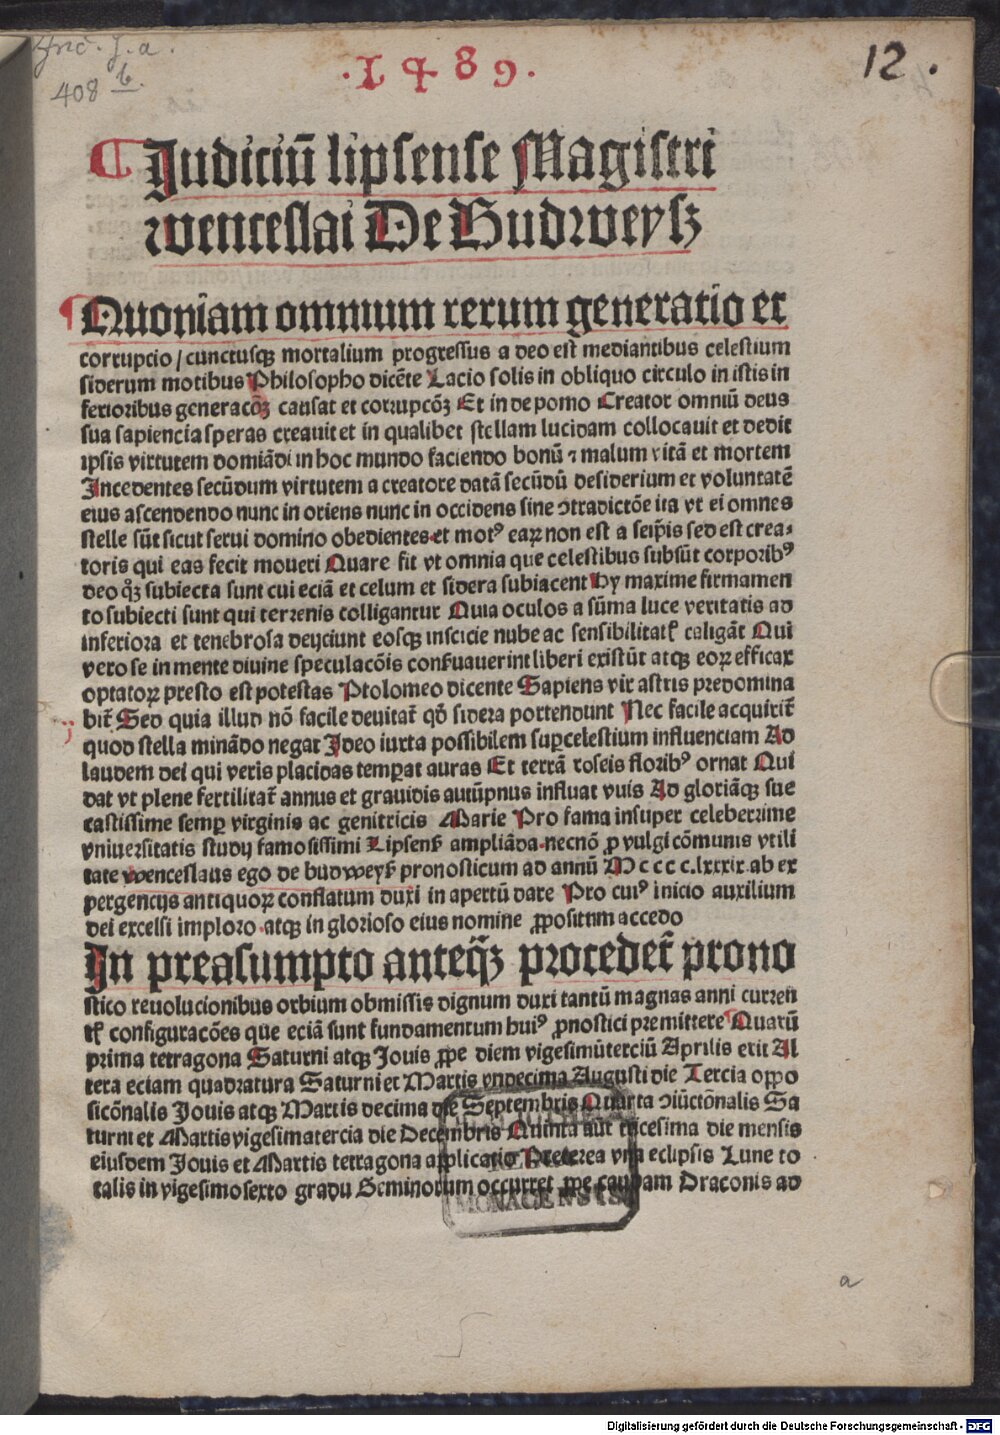 Inc. s. a.
408 b.
·1489·
12.
¶ Judiciū lipsense Magistri
wenceslai De Budweysz
¶ Quoniam omnium rerum generatio et
corrupcio / cunctusqꝫ mortalium progressus a deo est mediantibus celestium
siderum motibus Philosopho dicēte Lacio solis in obliquo circulo in istis in
ferioribus generacōꝫ causat et corrupcōꝫ Et in de pomo Creator omniū deus
sua sapiencia speras creauit et in qualibet stellam lucidam collocauit et dedit
ipsis virtutem domiādi in hoc mundo faciendo bonū ⁊ malum vitā et mortem
Incedentes secūdum virtutem a creatore datā secūdū desiderium et voluntatē
eius ascendendo nunc in oriens nunc in occidens sine ↄtradictōe ita vt ei omnes
stelle sūt sicut serui domino obedientes et motꝰ eaꝝ non est a seip̄is sed est crea-
toris qui eas fecit moueri Quare fit vt omnia que celestibus subsūt corporibꝰ
deo qꝫ subiecta sunt cui eciā et celum et sidera subiacent hy maxime firmamen
to subiecti sunt qui terrenis colligantur Quia oculos a sūma luce veritatis ad
inferiora et tenebrosa deijciunt eosqꝫ inscicie nube ac sensibilitatꝭ caligāt Qui
vero se in mente diuine speculacōis conſuauerint liberi existūt atqꝫ eoꝝ efficax
optatoꝝ presto est potestas Ptolomeo dicente Sapiens vir astris predomina
bit̄ Sed quia illud nō facile deuitat̄ qd̄ sidera portendunt Nec facile acquirit̄
quod stella minādo negat Ideo iuxta possibilem suꝑcelestium influenciam Ad
laudem dei qui veris placidas temꝑat auras Et terrā roseis floribꝰ ornat Qui
dat vt plene fertilitat̄ annus et grauidis autūpnus influat vuis Ad gloriāqꝫ sue
castissime semꝑ virginis ac genitricis Marie Pro fama insuper celeberrime
vniuersitatis studij famosissimi Lipsenꝭ ampliāda necnō ꝓ vulgi cōmunis vtili
tate wenceslaus ego de budweyꝭ pronosticum ad annū M c c c c.lxxxix ab ex
pergencijs antiquoꝝ conflatum duxi in apertū dare Pro cuiꝰ inicio auxilium
dei excelsi imploro atqꝫ in glorioso eius nomine ꝓpositum accedo
In preasumpto anteqꝫ procedet̄ prono
stico reuolucionibus orbium obmissis dignum duxi tantū magnas anni curren
tꝭ configuracōes que eciā sunt fundamentum huiꝰ ꝓnostici premittere Quarū
prima tetragona Saturni atqꝫ Jouis ꝓpe diem vigesimūterciū Aprilis erit Al
tera eciam quadratura Saturni et Martis vndecima Augusti die Tercia oppo
sicōnalis Jouis atqꝫ Martis decima die Septembris Quarta ↄiūctōnalis Sa
turni et Martis vigesimatercia die Decembris Quinta aut tricesima die mensis
eiusdem Jouis et Martis tetragona applicatio Preterea vna eclipsis Lune to
talis in vigesimosexto gradu Geminorum occurret ꝓpe caudam Draconis ad
MONACENSIS
a
Digitalisierung gefördert durch die Deutsche Forschungsgemeinschaft - DFG